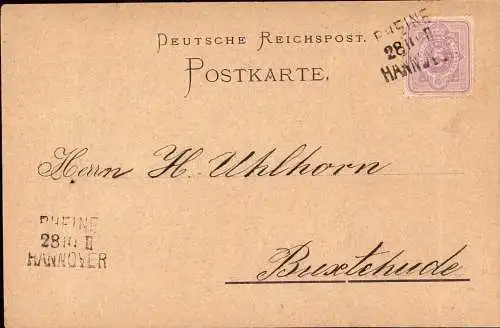 DEUTSCHE REICHSPOST.
POSTKARTE.
RHEINE
28 10 II
HANNOVER
Herrn H. Uhlhorn
RHEINE
28 10 II
HANNOVER
Buxtehude